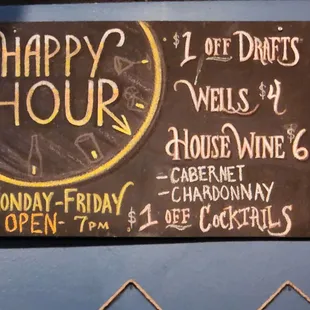 HAPPY
HOUR
MONDAY-FRIDAY
OPEN- 7PM
$1 OFF DRAFTS
WELLS $4
HOUSE WINE $6
- CABERNET
- CHARDONNAY
$1 OFF COCKTAILS